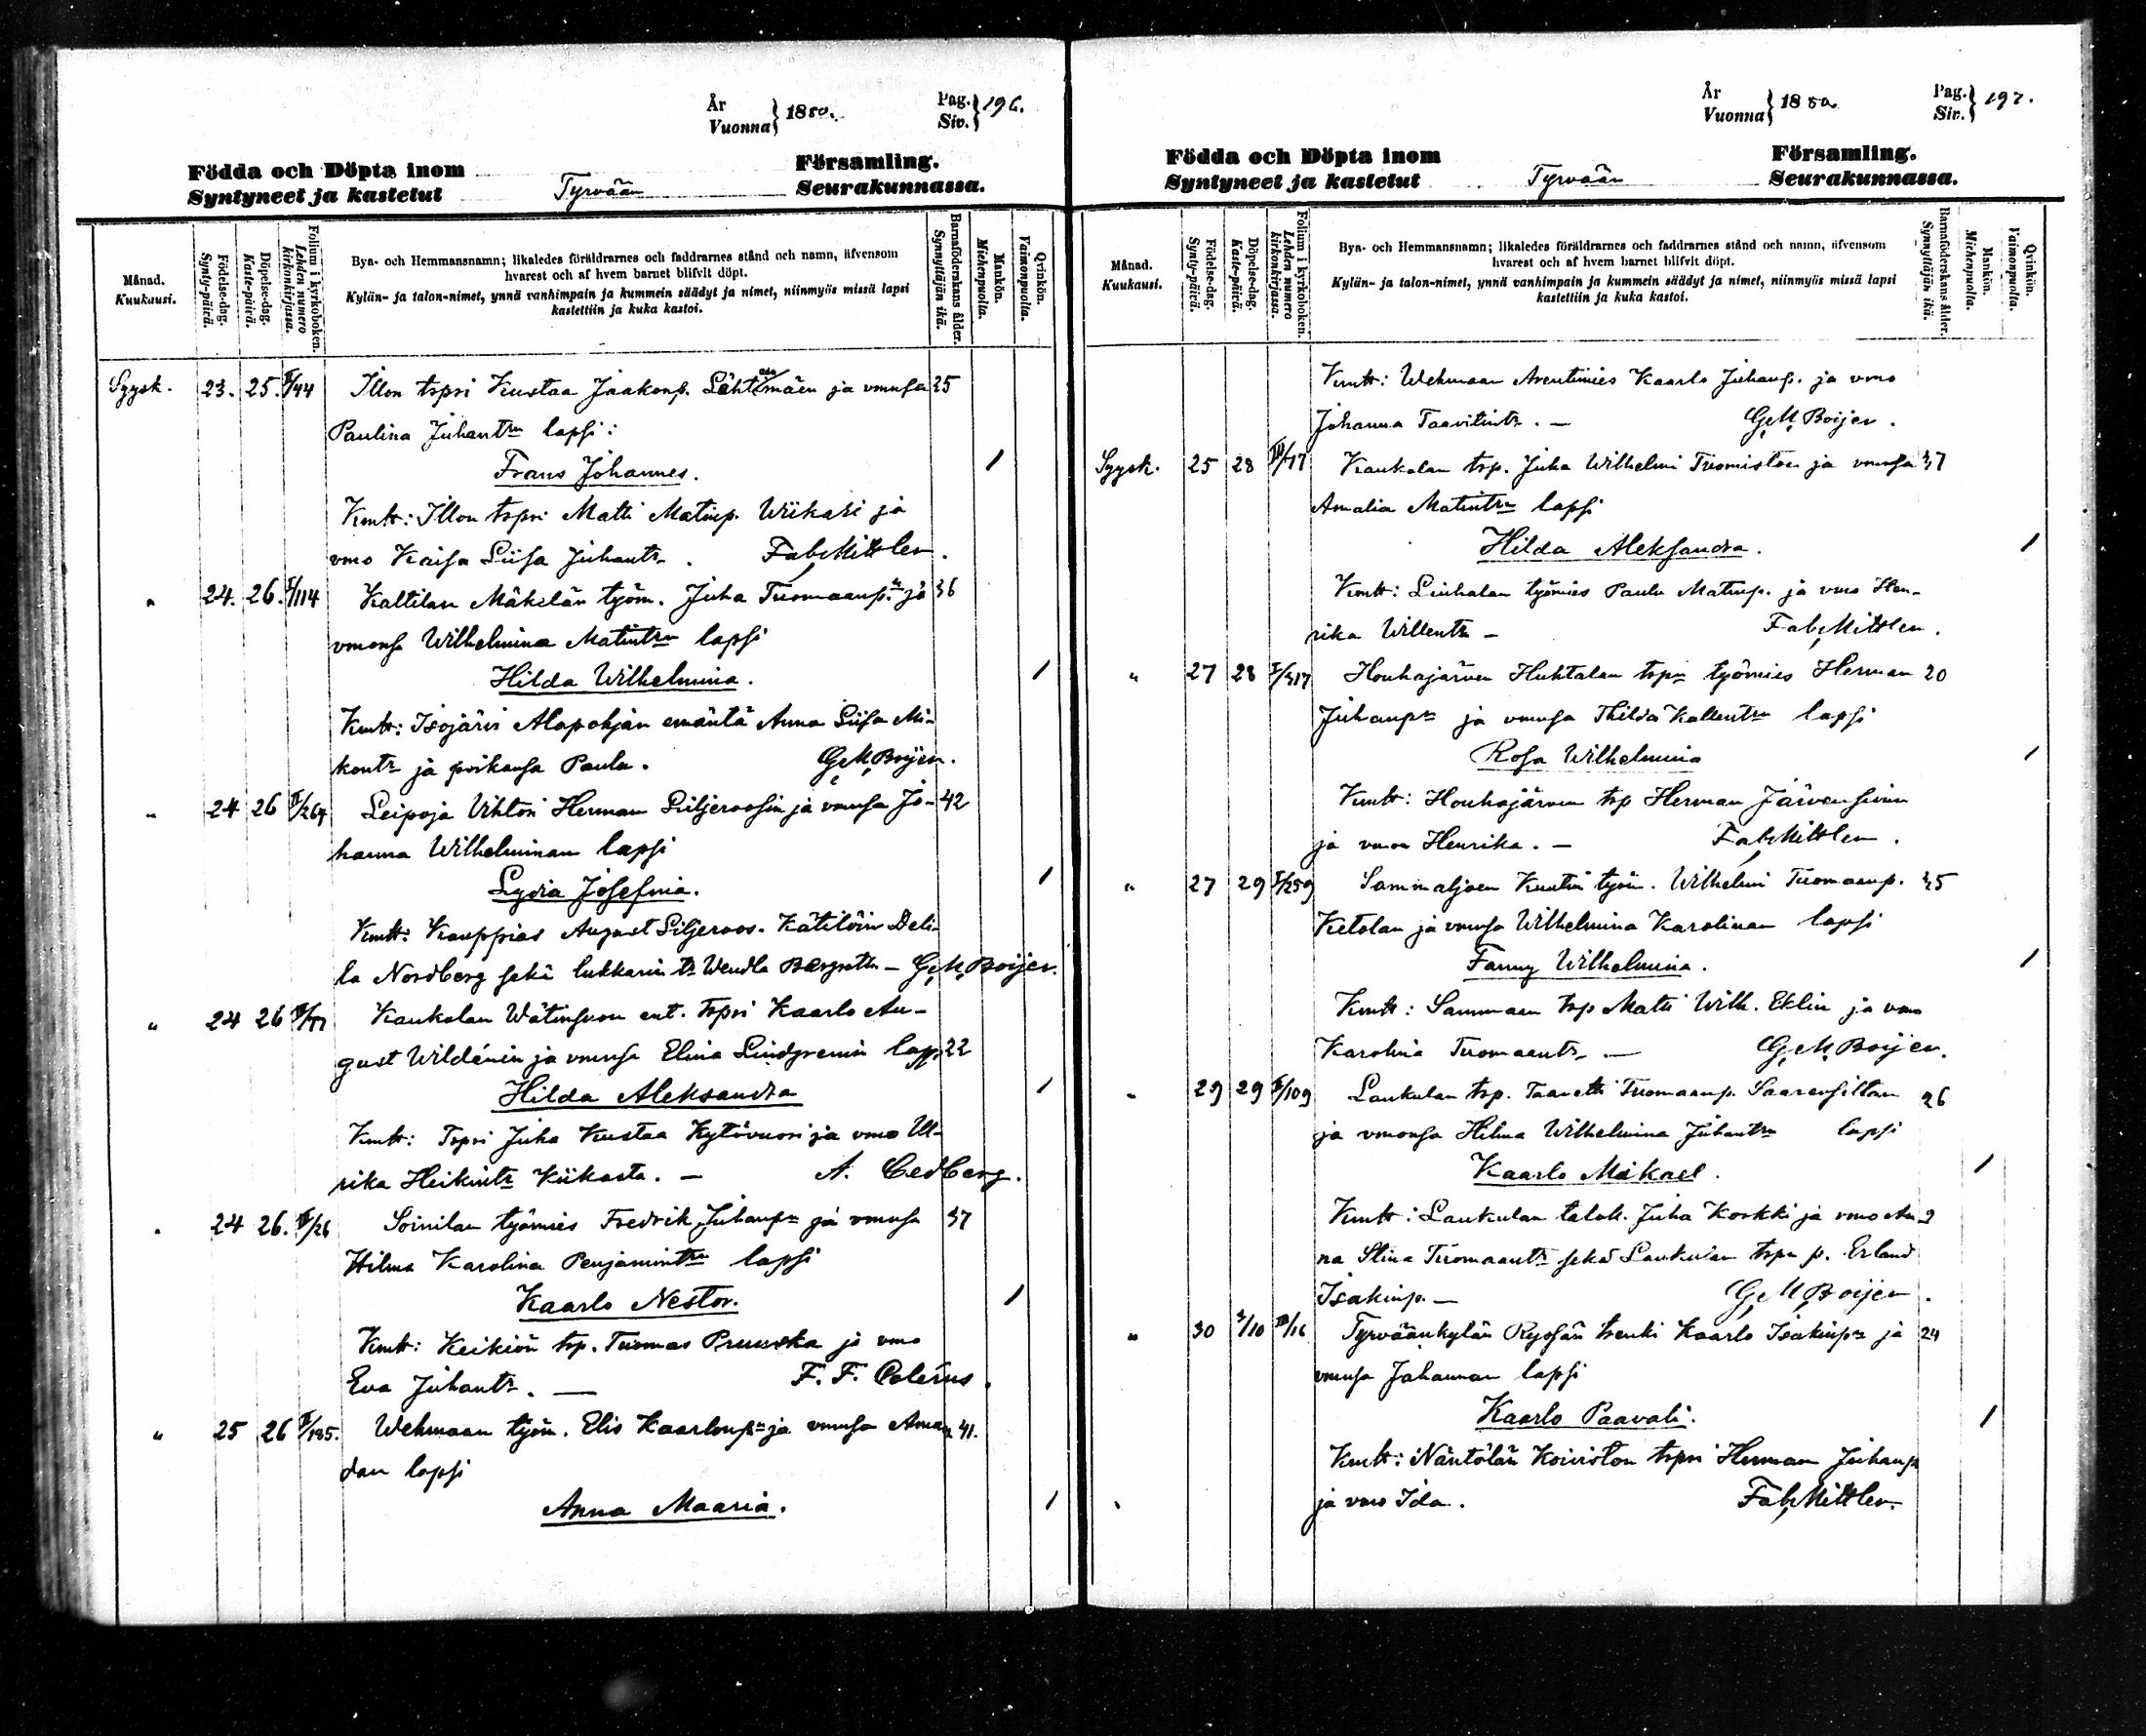 År
Vuonna } 1880.
Pag.
Siv. } 196.
Födda och Döpta inom Församling.
Syntyneet ja kastetut Tyrvään Seurakunnassa.
Månad.
Kuukausi.
Födelse-dag.
Synty-päivä.
Döpelse-dag.
Kaste-päivä.
Folium i kyrkoboken.
Lehden numero kirkonkirjassa.
Bya- och Hemmansnamn; likaledes föräldrarnes och faddrarnes stånd och namn, äfvensom
hvarest och af hvem barnet blifvit döpt.
Kylän- ja talon-nimet, ynnä vanhimpain ja kummein säädyt ja nimet, niinmyös missä lapsi
kastettiin ja kuka kastoi.
Barnaföderskans ålder.
Synnyttäjän ikä.
Mankön.
Miehenpuolia.
Qvinkön.
Vaimonpuolia.
Syysk. 23. 25. Illon tspri Kustaa Jaakonp. Lähtesmäen ja vmnsa 25
Paulina Juhantrn lapsi:
Frans Johannes. 1
Kmtt: Illon tspri Matti Matinp. Wiikari ja
vmo Kaisa Liisa Juhantr. Fab. Mittler.
" 24. 26. I/114 Kaltilan Mäkelän työm. Juha Tuomaanp.n ja 36
vmonsa Wilhelmina Matintrn lapsi
Hilda Wilhelmina. 1
Kmtt: Isojärvi Alapohjan emäntä Anna Liisa Mi-
kontr ja poikansa Paulu. G. M. Boijer.
" 24 26 II/264 Leipoja Vihtori Herman Siljeroosin ja vmnsa Jo- 42
hanna Wilhelminan lapsi
Lydia Josefina. 1
Kmtt: Kauppias August Siljeroos. Kätilöin Deli-
la Nordberg sekä lukkarin tr Wendla - G. M. Boijer.
" 24 26 Kaukolan Wätinsuon ent. tspri Kaarlo Au-
gust Wildénin ja vmnsa Elina Lindgrenin lapsi 22
Hilda Aleksandra 1
Kmtt: Tspri Juha Kustaa Kytövuori ja vmo Ul-
rika Heikintr Kiikasta. - A. Cedberg.
" 24 26. III/26 Soinilan työmies Fredrik Juhanpn ja vmnsa 37
Hilma Karolina Penjamintrn lapsi
Kaarlo Nestor. 1
Kmtt: Keikiön tsp. Tuomas Pruuska ja vmo
Eva Juhantr. — F. F. Colérus.
" 25 26 II/185. Wehmaan työm. Elis Kaarlonpn ja vmnsa Aman- 41.
dan lapsi
Anna Maaria. 1
År
Vuonna } 1880.
Pag.
Siv. } 197.
Födda och Döpta inom Församling.
Syntyneet ja kastetut Tyrvään Seurakunnassa.
Månad.
Kuukausi.
Födelse-dag.
Synty-päivä.
Döpelse-dag.
Kaste-päivä.
Folium i kyrkoboken.
Lehden numero kirkonkirjassa.
Bya- och Hemmansnamn; likaledes föräldrarnes och faddrarnes stånd och namn, äfvensom
hvarest och af hvem barnet blifvit döpt.
Kylän- ja talon-nimet, ynnä vanhimpain ja kummein säädyt ja nimet, niinmyös missä lapsi
kastettiin ja kuka kastoi.
Barnaföderskans ålder.
Synnyttäjän ikä.
Mankön.
Miehenpuolia.
Qvinkön.
Vaimonpuolia.
Kmtt: Wehmaan Arentimies Kaarlo Juhanp. ja vmo
Johanna Taavitintr. - G. M. Boijer.
Syysk. 25 28 Kaukolan tsp. Juha Wilhelmi Tuomiston ja vmnsa 37
Amalia Matintrn lapsi
Hilda Aleksandra. 1
Kmtt: Liuhalan työmies Paulu Matinp. ja vmo Hen-
rika Willentr - Fab. Mittler.
" 27 28 I/317 Houhajärven Huhtalan tspn työmies Herman 20
Juhanpn ja vmnsa Thilda Kallentrn lapsi
Rosa Wilhelmina 1
Kmtt: Houhajärven tsp Herman Järvensivu
ja vmo Henrika. - Fab. Mittler.
" 27 29 I/259 Sammaljoen Kuutin työm. Wilhelmi Tuomaanp. 35
Ketolan ja vmnsa Wilhelmina Karolinan lapsi
Fanny Wilhelmina. 1
Kmtt: Sammaen tsp Matti Wilh. Eklin ja vmo
Karolina Tuomaantr - G. M. Boijer.
" 29 29 II/109 Laukulan tsp. Taavetti Tuomaanp. Saarensiltan 26
ja vmonsa Hilma Wilhelmina Juhantrn lapsi
Kaarlo Mikael. 1
Kmtt: Laukulan taloll. Juha Korkki ja vmo An-
na Stina Tuomaantr sekä Laukulan tspn p. Erland
Isakinp. - G. M. Boijer.
" 30 3/10 III/16 Tyrväänkylän Ryssän renki Kaarlo Isakinpn ja 24
vmnsa Johannan lapsi
Kaarlo Paavali. 1
Kmtt: Näntölän Koiviston tspri Herman Juhanp
ja vmo Ida. Fab. Mittler.